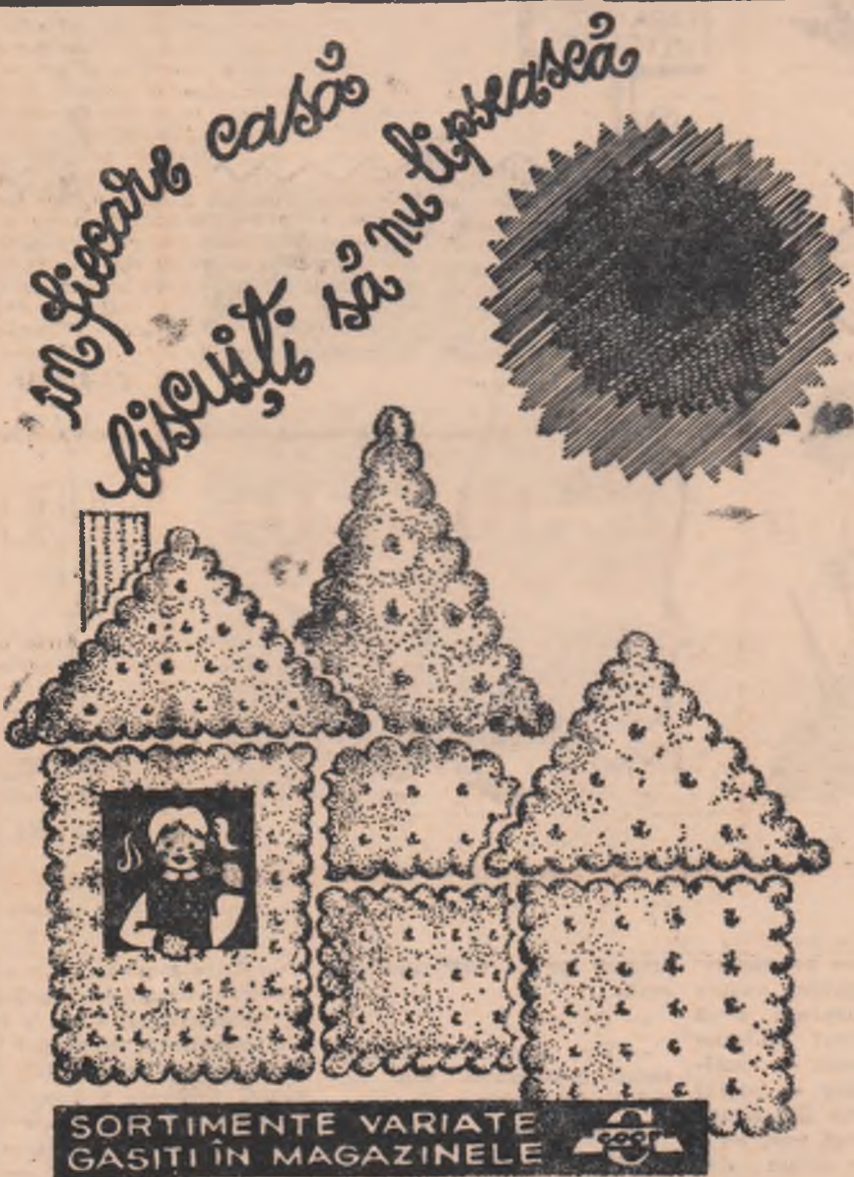 în fiecare casă
biscuiți să nu lipsească
SORTIMENTE VARIATE
GASIȚI ÎN MAGAZINELE